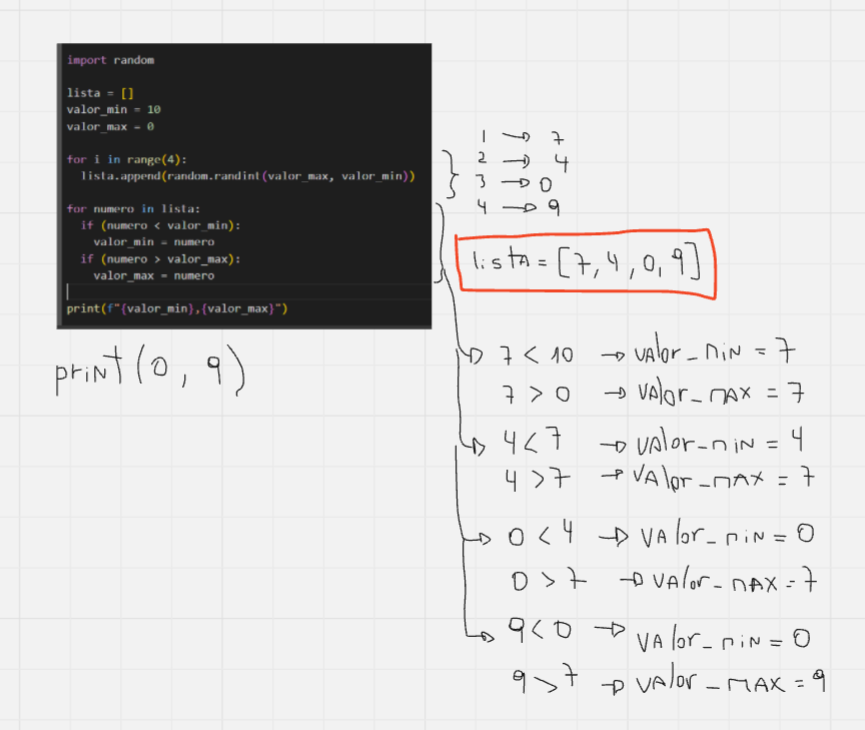 import random
lista = []
valor_min = 10
valor_max = 0
for i in range(4):
lista.append(random.randint(valor_max, valor_min))
for numero in lista:
if (numero < valor_min):
valor_min = numero
if (numero > valor_max):
valor_max = numero
print(f"{valor_min},{valor_max}")
print(0, 9)
1 → 7
2 → 4
3 → 0
4 → 9
lista = [7, 4, 0, 9]
7 < 10 → valor_min = 7
7 > 0 → valor_max = 7
4 < 7 → valor_min = 4
4 > 7 → valor_max = 7
0 < 4 → valor_min = 0
0 > 7 → valor_max = 7
9 < 0 → valor_min = 0
9 > 7 → valor_max = 9